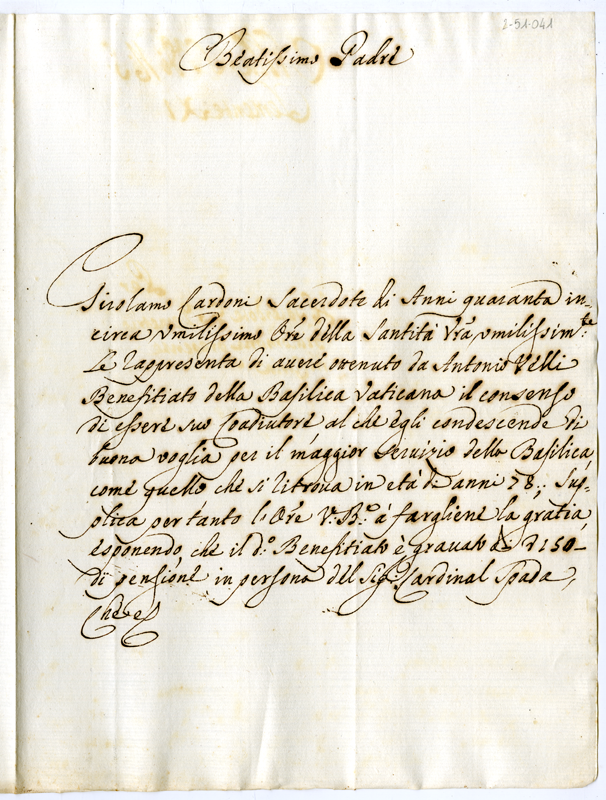 2-51-041
Beatissimo Padre
Girolamo Cardoni Sacerdote di Anni quaranta in=
circa umilissimo Ore della Santità Vra umilissimte:
Le rappresenta di avere ottenuto da Antonio Velli
Benefitiato della Basilica Vaticana il consenso
di essere suo Coadiutore al che egli condescende di
buona voglia per il maggior Servizio della Basilica,
come quello che si ritrova in età di anni 78,; Sup=
plica per tanto l'Ore V: B.e à fargliene la gratia,
esponendo che il do: Benefitiato è gravato di 150=
di pensione in persona del Sigr Cardinal Spada,
Che &